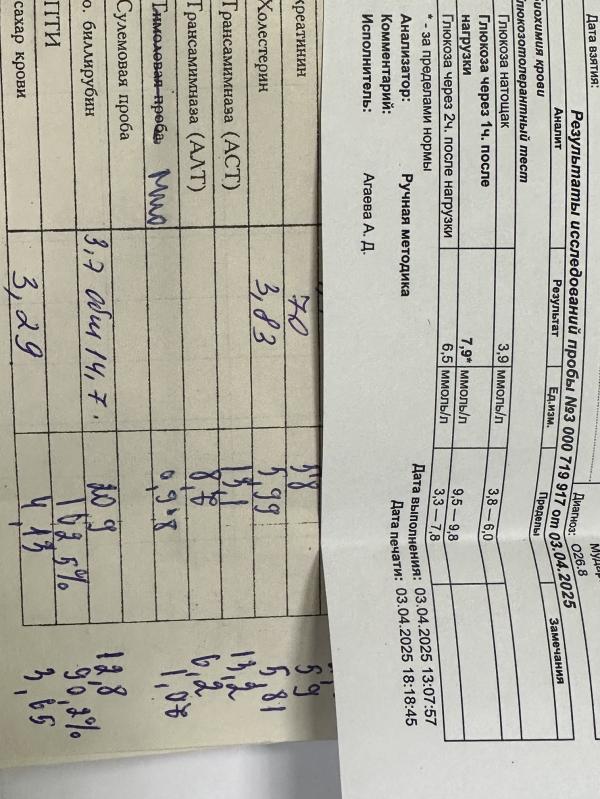 Дата взятия:
Результаты исследований пробы №3 000 719 917 от 03.04.2025
Диагноз: О26.8
Аналит Результат Ед.изм. Пределы Замечания
Биохимия крови
Глюкозотолерантный тест
Глюкоза натощак 3,9 ммоль/л 3,8 – 6,0
Глюкоза через 1ч. после нагрузки 7,9* ммоль/л 9,5 – 9,8
Глюкоза через 2ч. после нагрузки 6,5 ммоль/л 3,3 – 7,8
* - за пределами нормы
Анализатор: Ручная методика
Комментарий:
Исполнитель: Агаева А. Д.
Дата выполнения: 03.04.2025 13:07:57
Дата печати: 03.04.2025 18:18:45
креатинин 70 58 59
Холестерин 3,83 5,99 5,81
Трансамимназа (АСТ) 13,1 13,2
Трансамимназа (АЛТ) 8,7 6,2
Тимоловая проба 0,98 1,07
Сулемовая проба
о. биллирубин 3,7 общ 14,7. 20,9 12,8
ПТИ 162,5% 90,2%
сахар крови 3,29 4,13 3,65